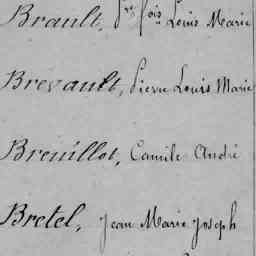 Brault, frs fois Louis Marie
Brevault, Pierre Louis Marie
Breuillot, Camile André
Bretel, Jean Marie Joseph